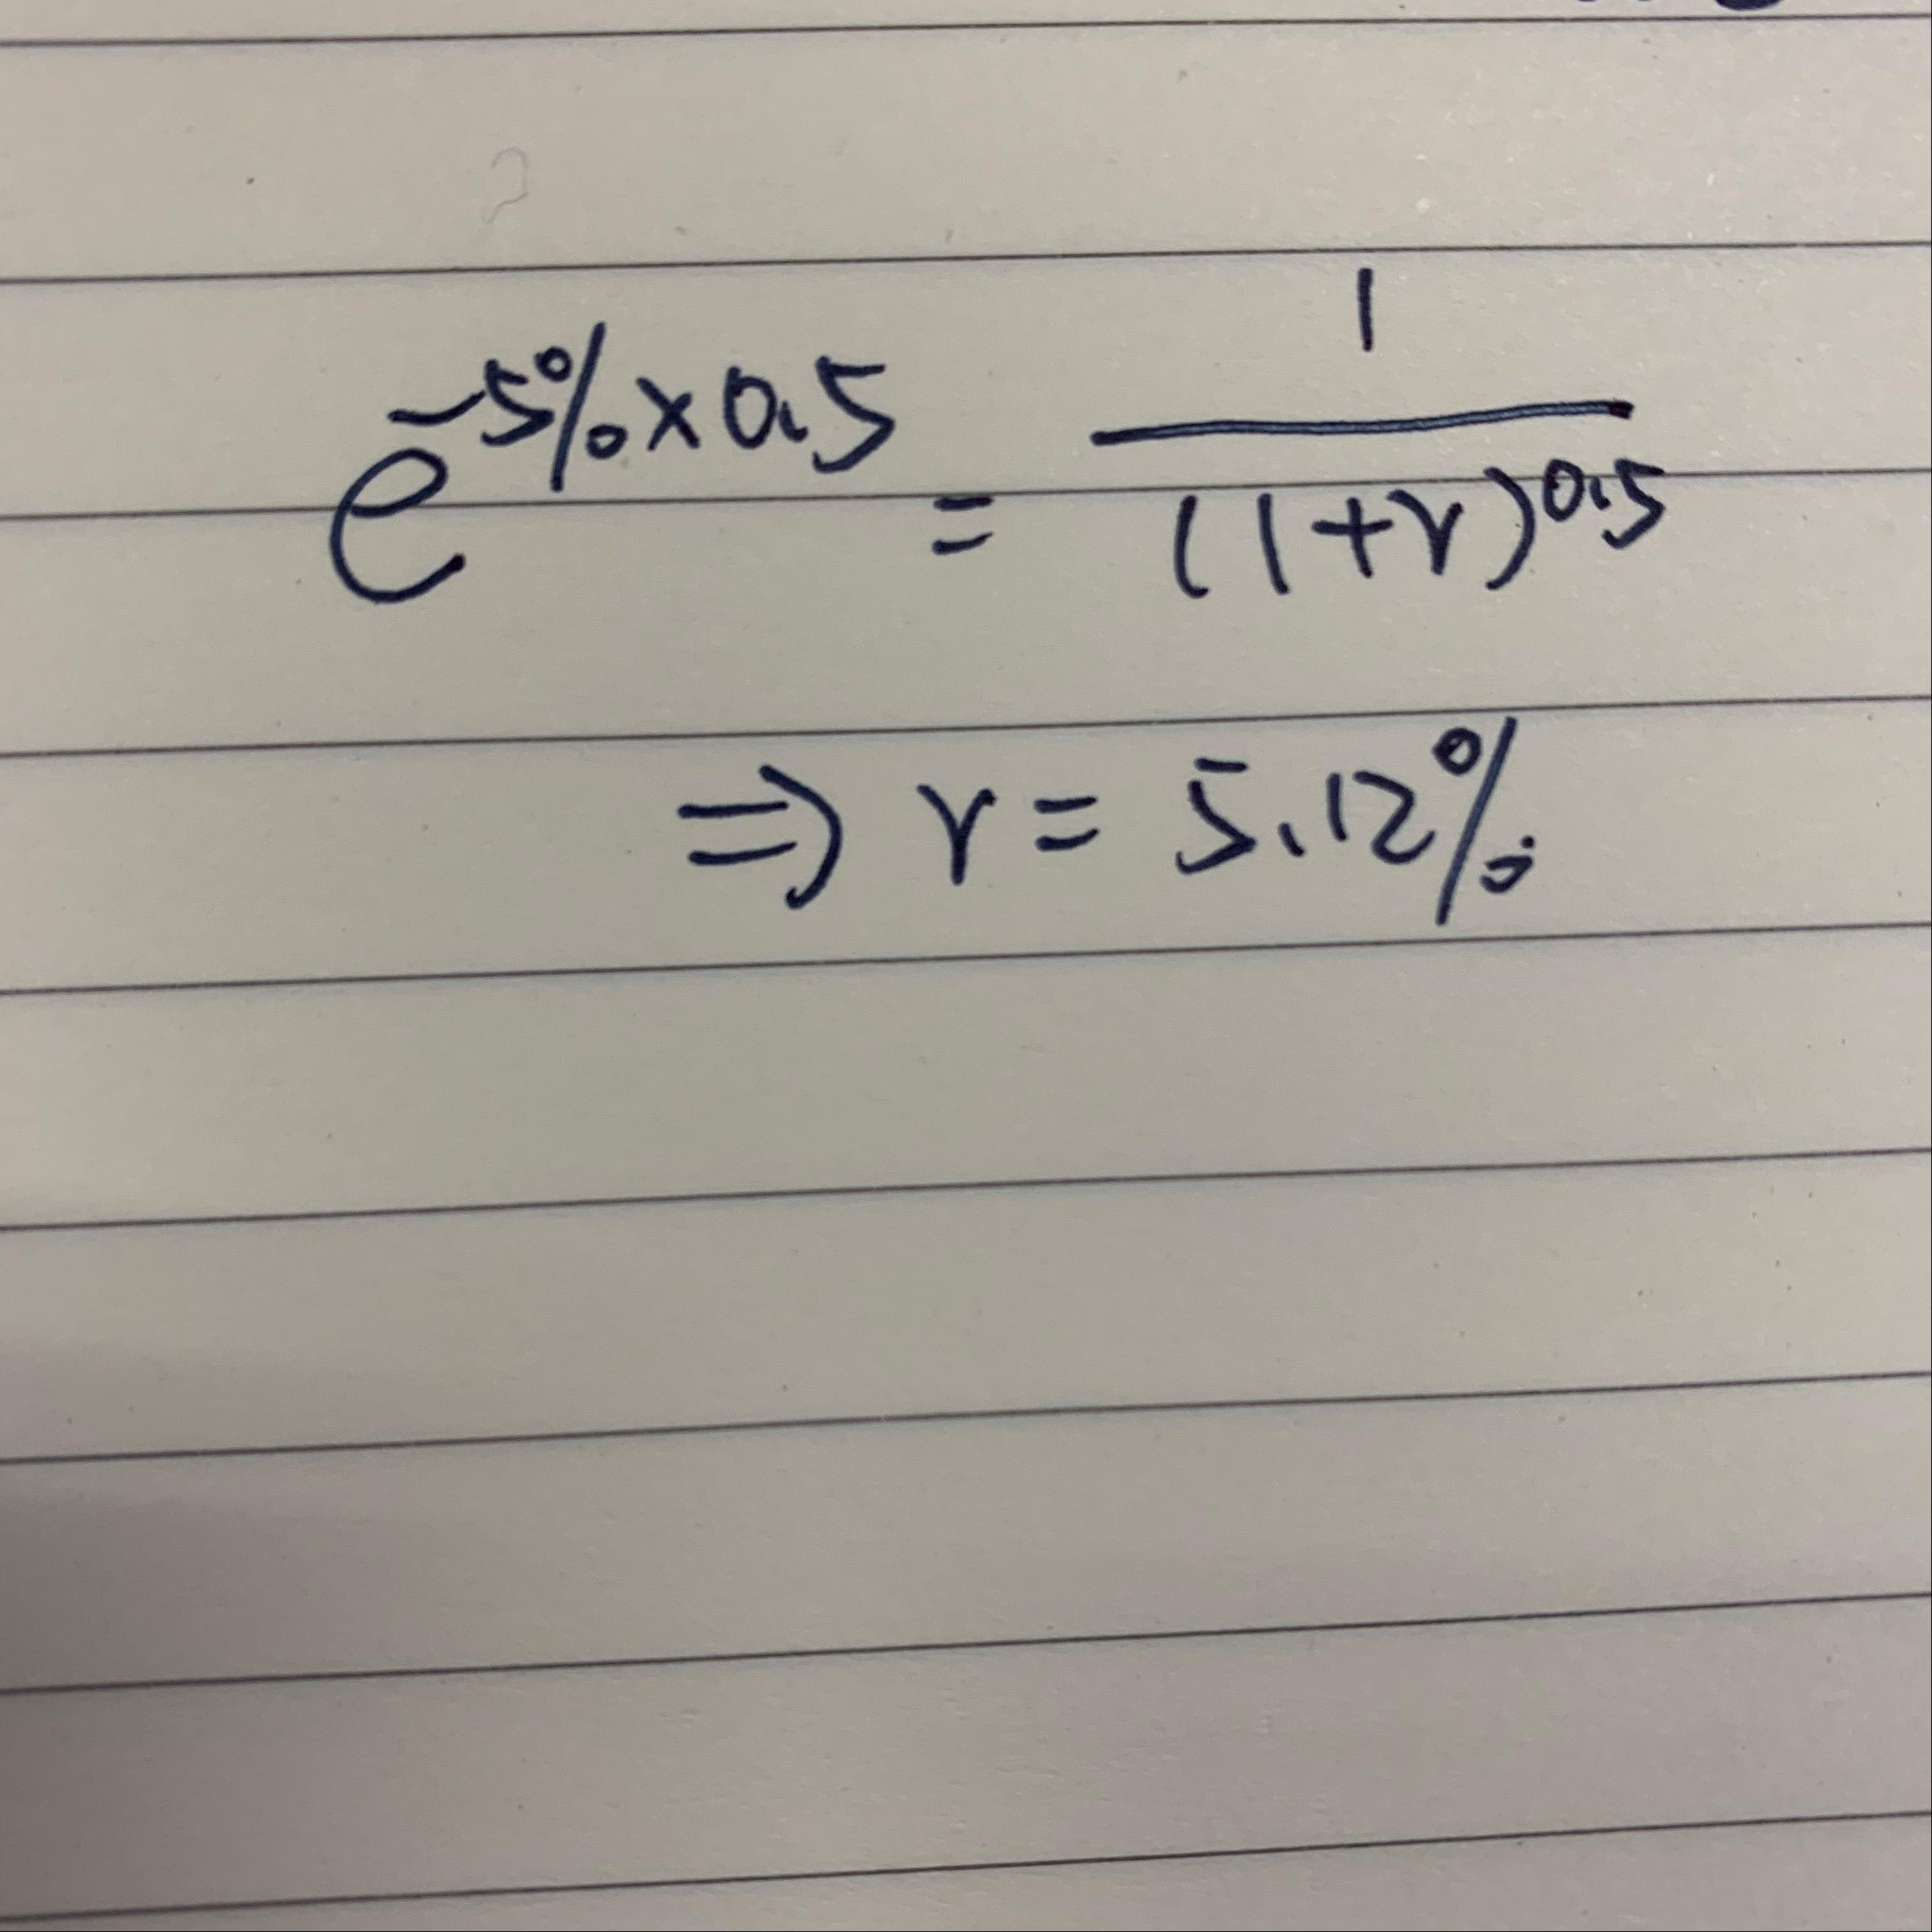 e^{-5%×0.5} = 1/(1+r)^{0.5}
⇒ r = 5.12%